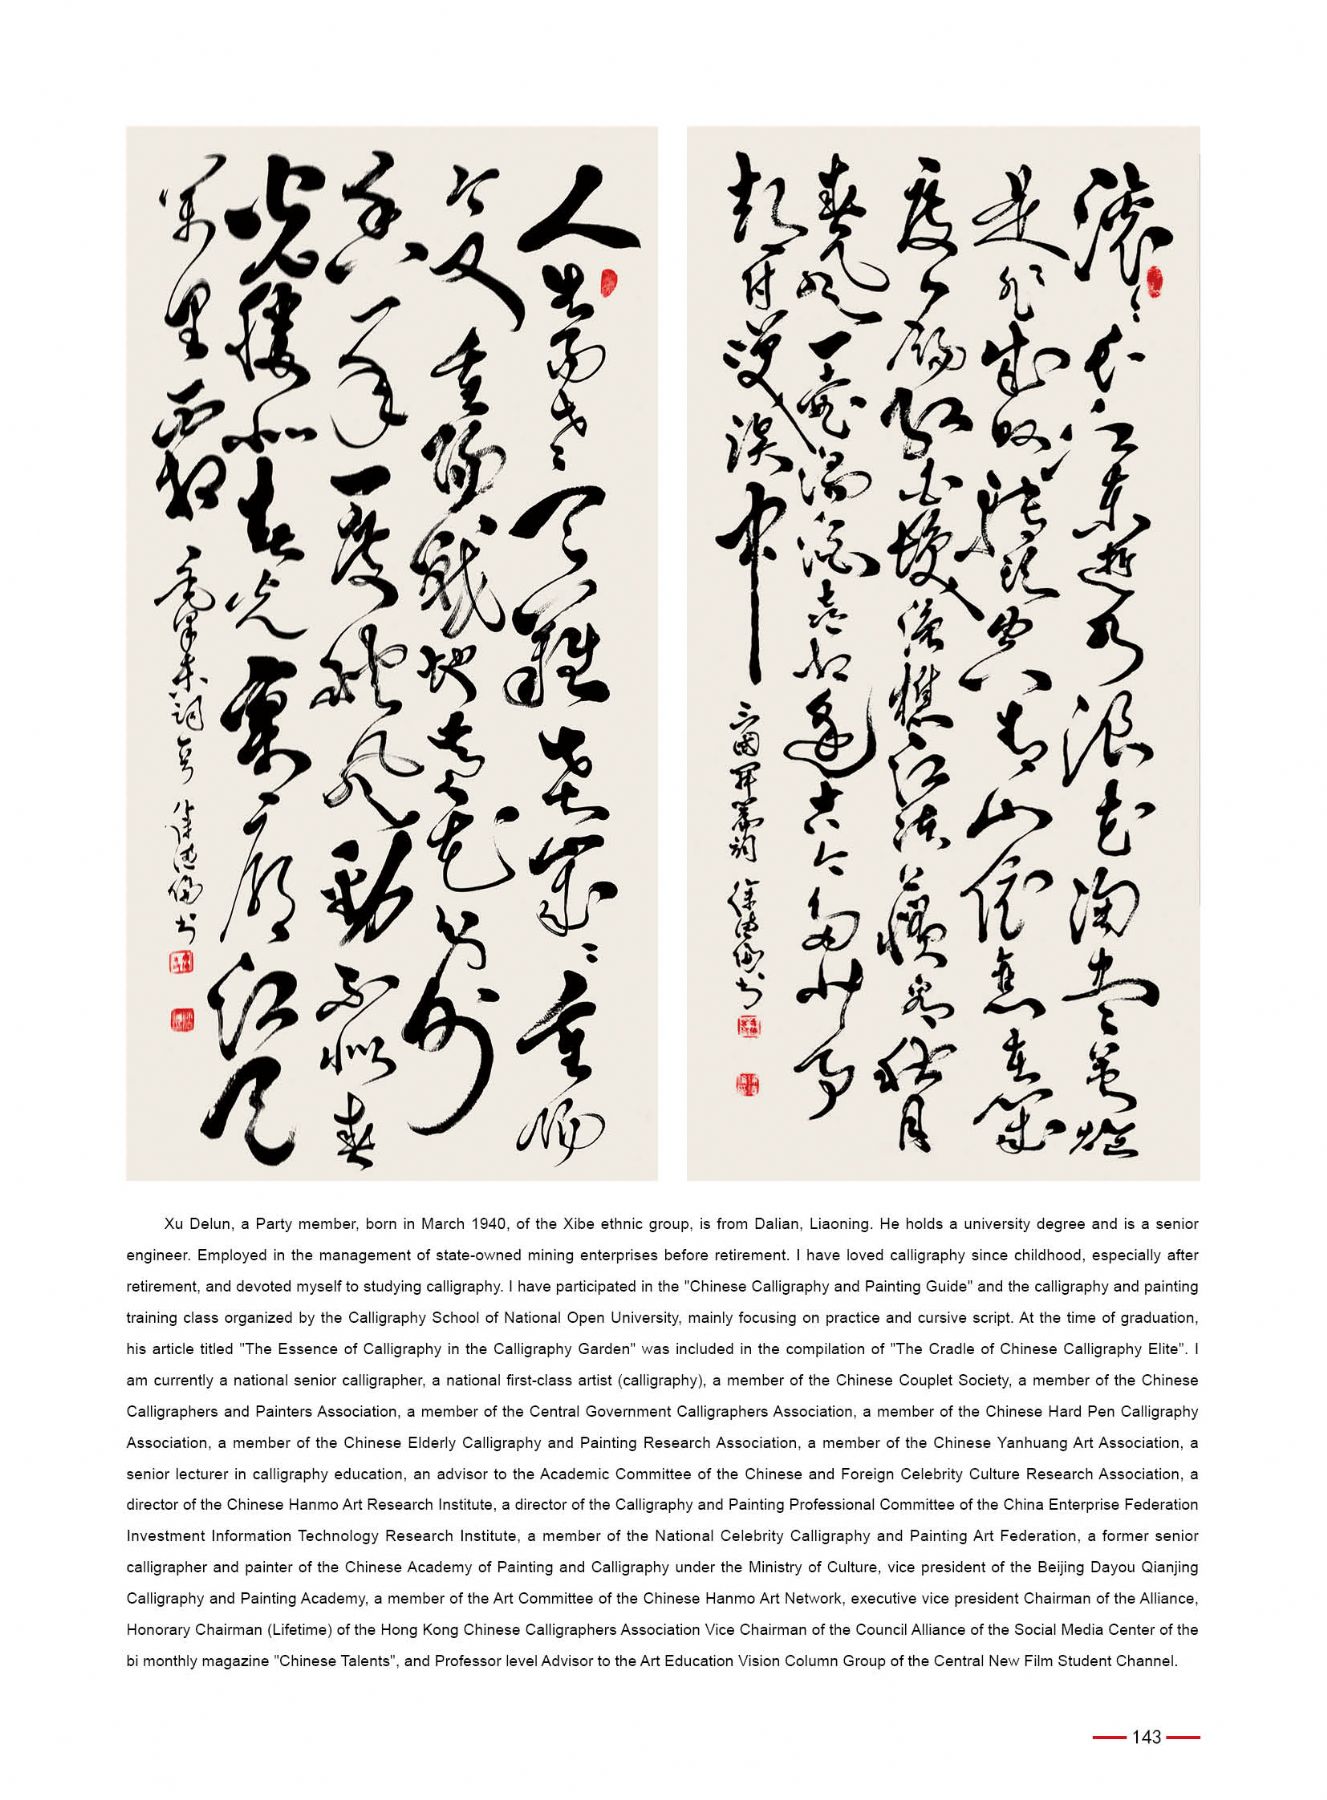 人生易老天難老歲〻重陽
今又重陽戰地黃花分外
香一年一度秋風勁不似春
光勝似春光寥廓江天
萬里霜 毛澤東詞 徐德倫书
滾〻長江東逝水浪花淘盡英雄
是非成敗轉頭空青山依舊在幾
度夕陽紅白髮漁樵江渚上慣看秋月
春風一壺濁酒喜相逢古今多少事
都付笑談中 三國開篇詞 徐德倫书
Xu Delun, a Party member, born in March 1940, of the Xibe ethnic group, is from Dalian, Liaoning. He holds a university degree and is a senior
engineer. Employed in the management of state-owned mining enterprises before retirement. I have loved calligraphy since childhood, especially after
retirement, and devoted myself to studying calligraphy. I have participated in the "Chinese Calligraphy and Painting Guide" and the calligraphy and painting
training class organized by the Calligraphy School of National Open University, mainly focusing on practice and cursive script. At the time of graduation,
his article titled "The Essence of Calligraphy in the Calligraphy Garden" was included in the compilation of "The Cradle of Chinese Calligraphy Elite". I
am currently a national senior calligrapher, a national first-class artist (calligraphy), a member of the Chinese Couplet Society, a member of the Chinese
Calligraphers and Painters Association, a member of the Central Government Calligraphers Association, a member of the Chinese Hard Pen Calligraphy
Association, a member of the Chinese Elderly Calligraphy and Painting Research Association, a member of the Chinese Yanhuang Art Association, a
senior lecturer in calligraphy education, an advisor to the Academic Committee of the Chinese and Foreign Celebrity Culture Research Association, a
director of the Chinese Hanmo Art Research Institute, a director of the Calligraphy and Painting Professional Committee of the China Enterprise Federation
Investment Information Technology Research Institute, a member of the National Celebrity Calligraphy and Painting Art Federation, a former senior
calligrapher and painter of the Chinese Academy of Painting and Calligraphy under the Ministry of Culture, vice president of the Beijing Dayou Qianjing
Calligraphy and Painting Academy, a member of the Art Committee of the Chinese Hanmo Art Network, executive vice president Chairman of the Alliance,
Honorary Chairman (Lifetime) of the Hong Kong Chinese Calligraphers Association Vice Chairman of the Council Alliance of the Social Media Center of the
bi monthly magazine "Chinese Talents", and Professor level Advisor to the Art Education Vision Column Group of the Central New Film Student Channel.
143